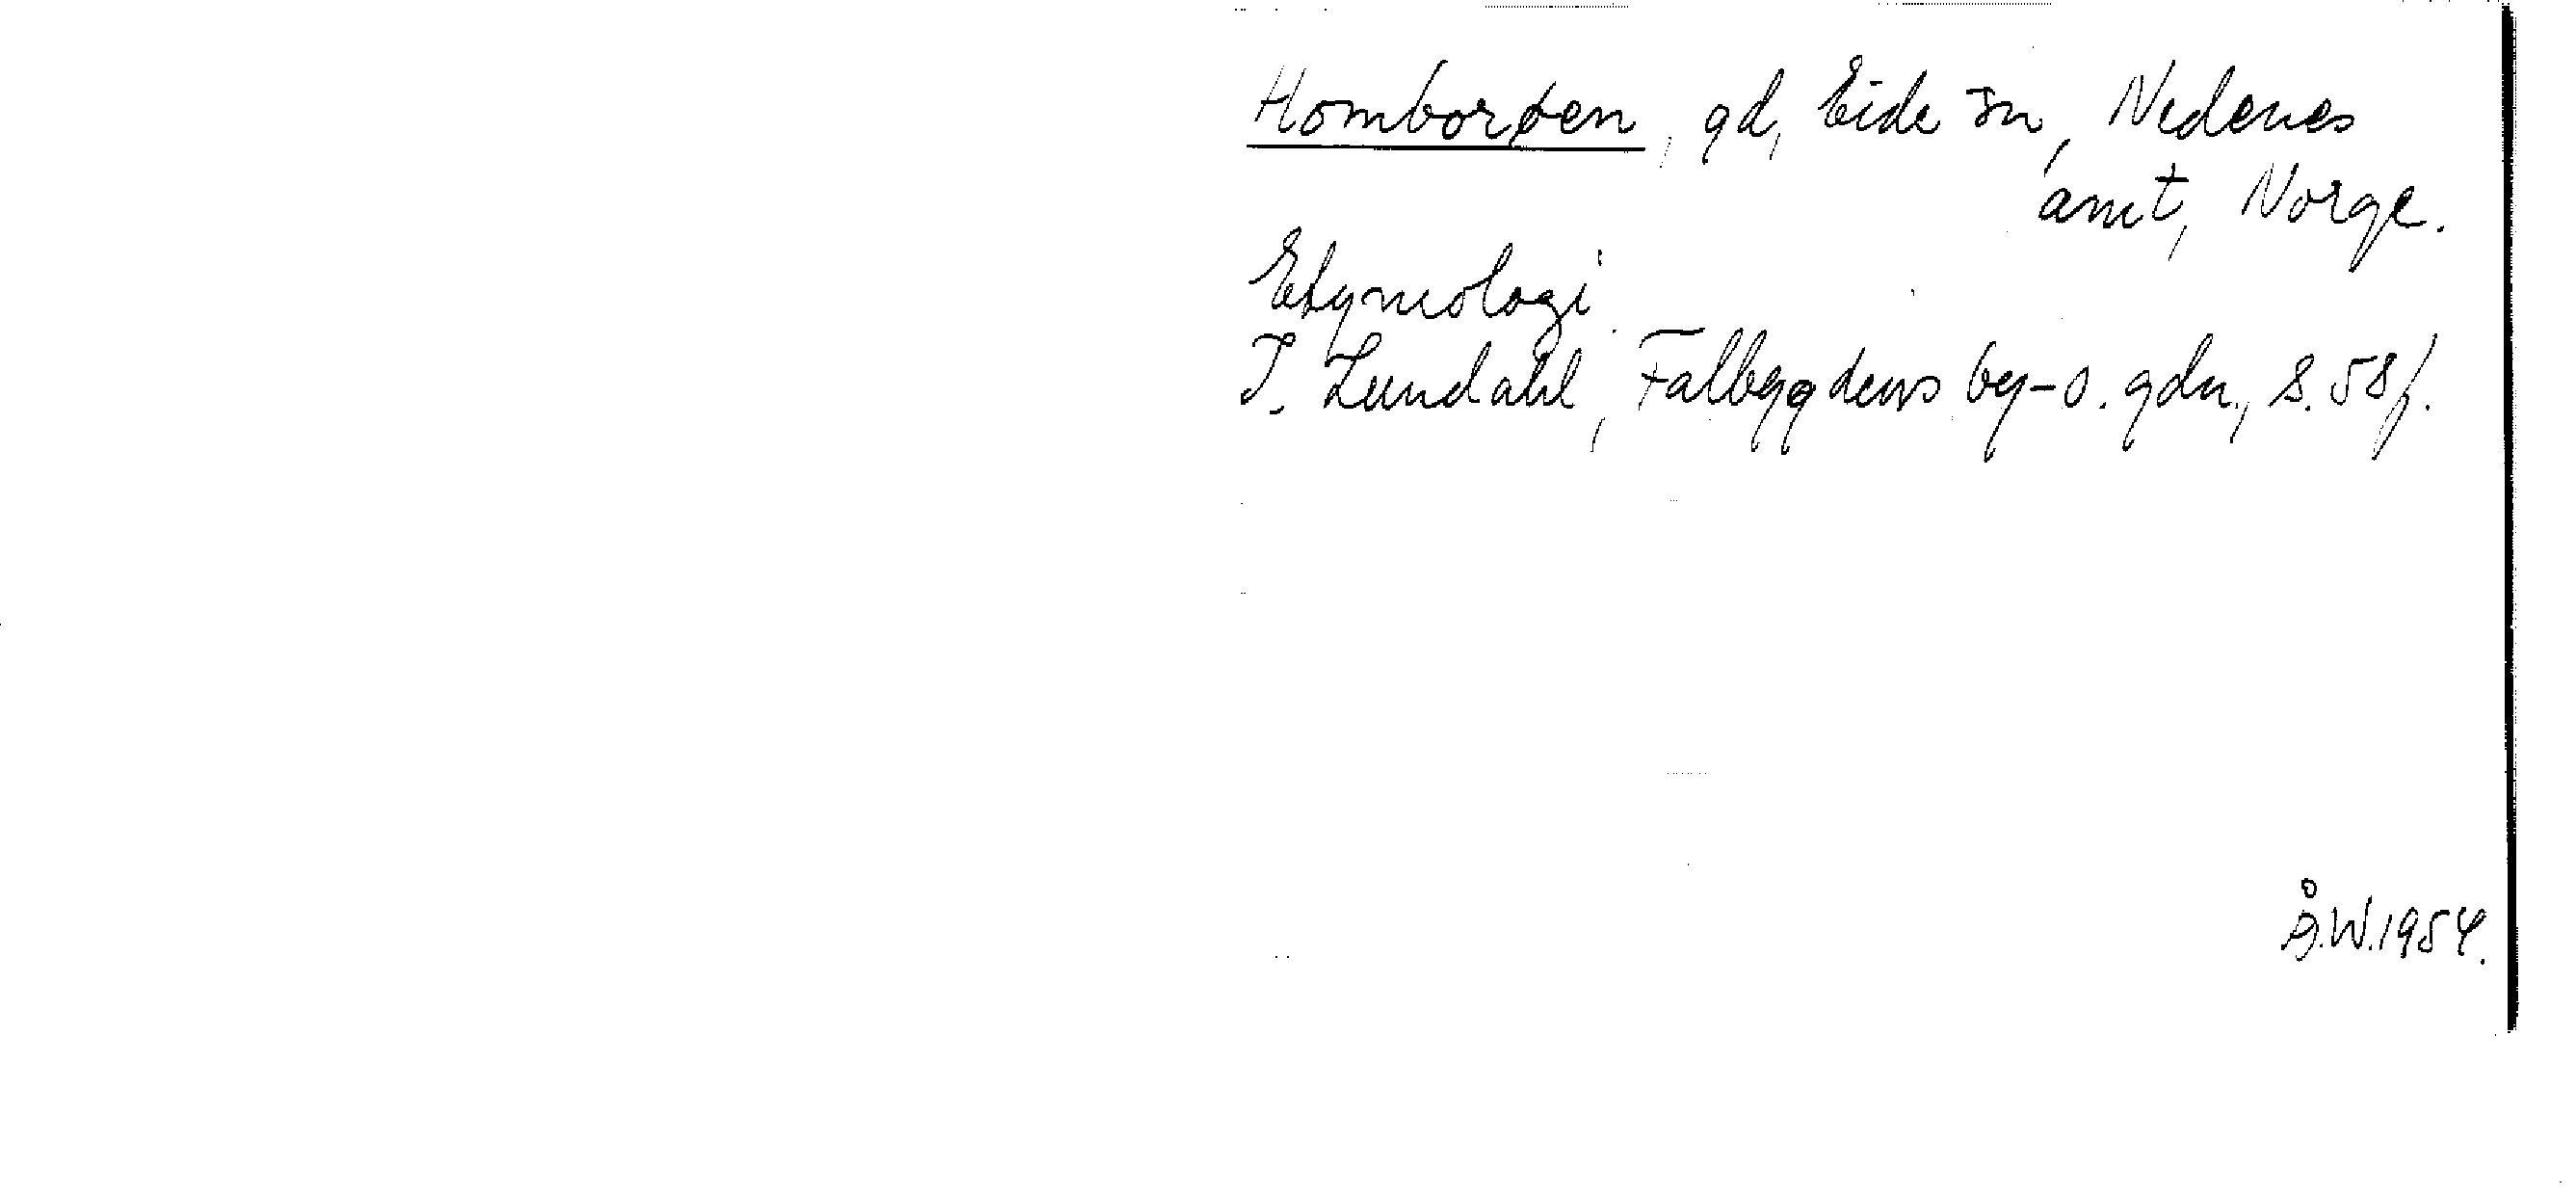 Homborøen, gd, Eide sn, Nedenes
amt, Norge.
Etymologi.
I. Lundahl, Falbygdens by- o. gdn., s. 58 f.
Å.W. 1954.